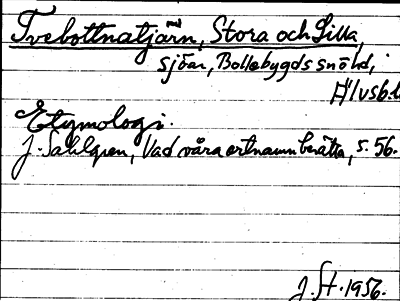 Tvebottnatjärn, Stora och Lilla,
sjöar, Bollebygds snöld,
Älvsb.l
Etymologi.
J. Sahlgren, Vad våra ortnamn berätta, s. 56.
J. St. 1956.